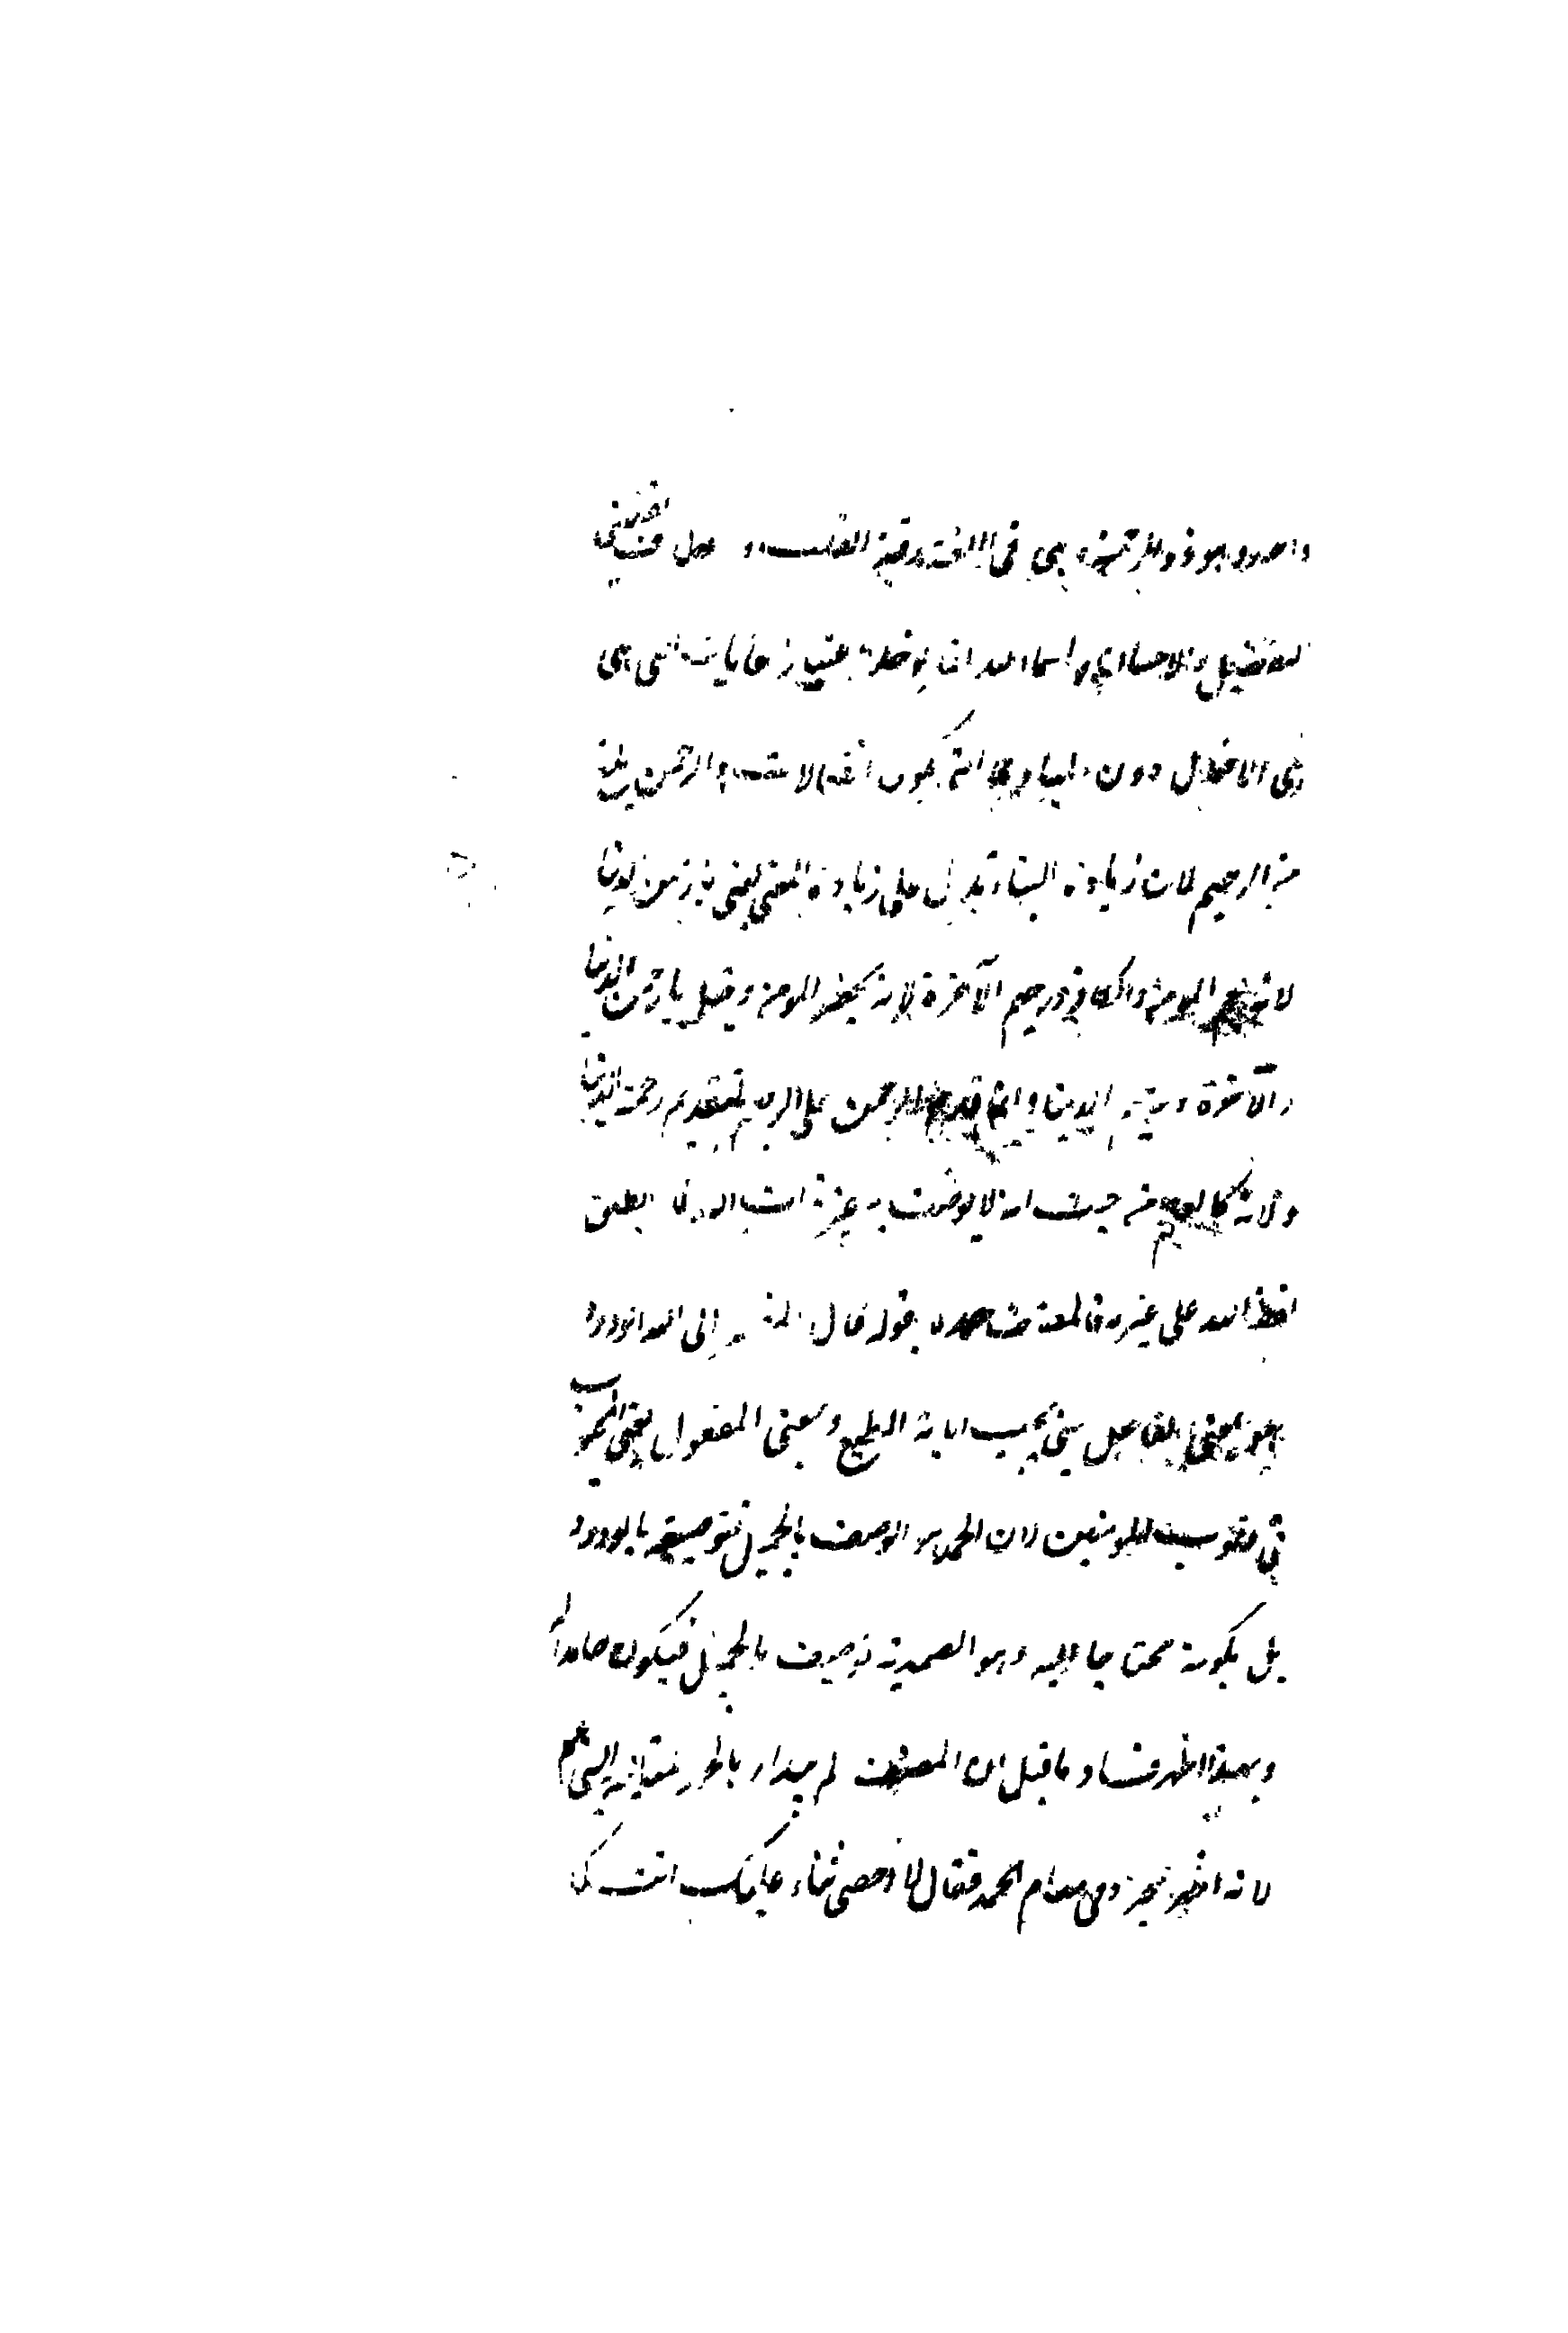 واحد وهو ذو الرحمة وهي في اللغة رقة القلب و تقتضي
التفضيل والاحسان واسماء الله انما يوخذ باعتبار الغايات التي هي
هي الافعال دون المبادي التي يكون انفعالات والرحمن ابلغ
من الرحيم لان زيادة البناء يدل على زيادة المعنى يعني يا رحمن الدنيا
لانه يعم المومن والكافر ورحيم الآخرة لانه يخص المومن وقيل يا رحمن الدنيا
والآخرة ورحيم الدنيا وانما قدم الرحمن على الرحيم لتقديم رحمة الدنيا
ولانه كالعلم من حيث انه لا يوصف به غيره
لفظ الله على غيره قال إلى الله الودود
وهو بمعنى الفاعل يعني يحب انابة المطيع وبمعنى المفعول يعني المحبوب
في قلوب المومنين لان الحمد هو الوصف بالجميل فتوصيفه بالودود
بل بكونه محتاجا اليه وهو الصمدية توصيف بالجميل فيكون حامدا
وبهذا ظهر فساد ما قيل ان المصنف لم يبدأ بالحمد
لانه اظهر عجزه في مقام الحمد فقال لا احصي ثناء عليك انت ك